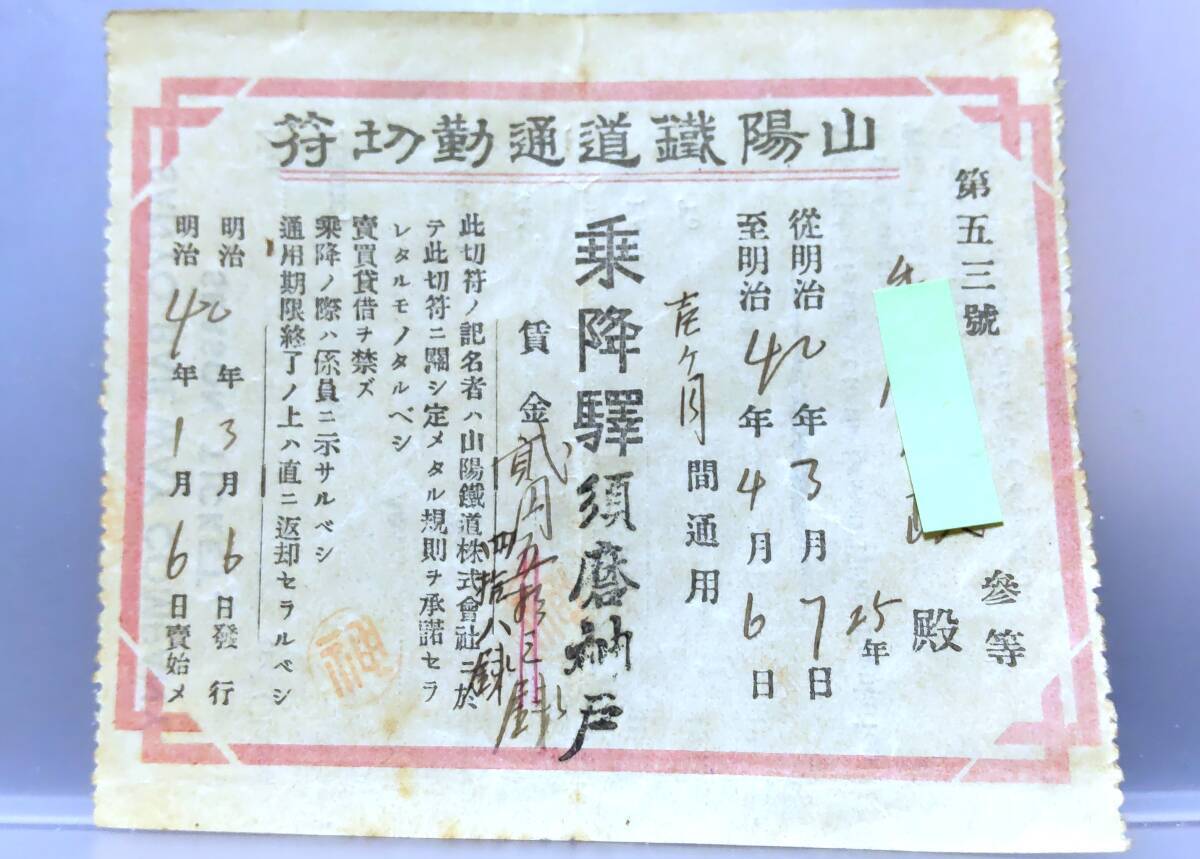 山陽鐵道通勤切符
第五三號
參等
殿
25年
從明治40年3月7日
至明治40年4月6日
壱ヶ月間通用
乘降驛須磨神戸
賃金貳円五拾三錢
四拾八錢
此切符ノ記名者ハ山陽鐵道株式會社ニ於
テ此切符ニ關シ定メタル規則ヲ承諾セラ
レタルモノタルベシ
賣買貸借ヲ禁ズ
乘降ノ際ハ係員ニ示サルベシ
通用期限終了ノ上ハ直ニ返却セラルベシ
明治40年3月6日發行
明治40年1月6日賣始メ
神